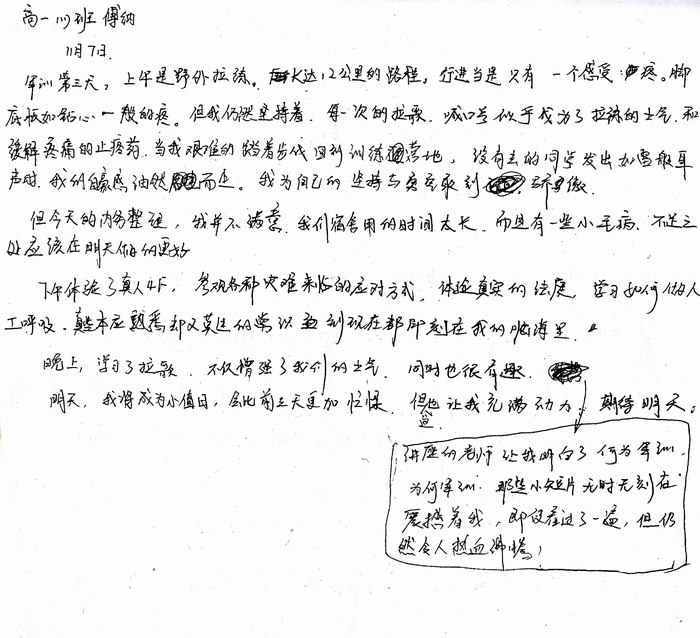 高一(11)班 傅纳
11月7日
军训第三天，上午是野外拉练。长达12公里的路程，行进当是只有一个感受：疼。脚
底板如钻心一般的疼。但我仍然坚持着，每一次的拉歌，喊口号似乎成为了拉练的士气，和
缓解疼痛的止疼药。当我艰难的踏着步伐回到训练营地，没有去的同学发出如雷般耳
声时，我的自豪感油然而生。我为自己的坚持与
但今天的内务整理，我并不满意，我们宿舍用的时间太长，而且有一些小毛病，不足之
处应该在明天做的更好
下午体验了真人CF，参观各种灾难来临的应对方式，体验真实的法庭，学习如何做人
工呼吸，本应熟悉却又莫生的常识 到现在都印刻在我的脑海里。
晚上，学习了拉歌，不仅增强了我们的士气，同时也很有趣。
明天，我将成为小值日，会比前三天更加忙碌，但也让我充满动力，期待明天。
讲座的老师让我明白了何为军训，
为何军训，那些小短片无时无刻在
震撼着我，即使看过了一遍，但仍
然令人热血沸腾；